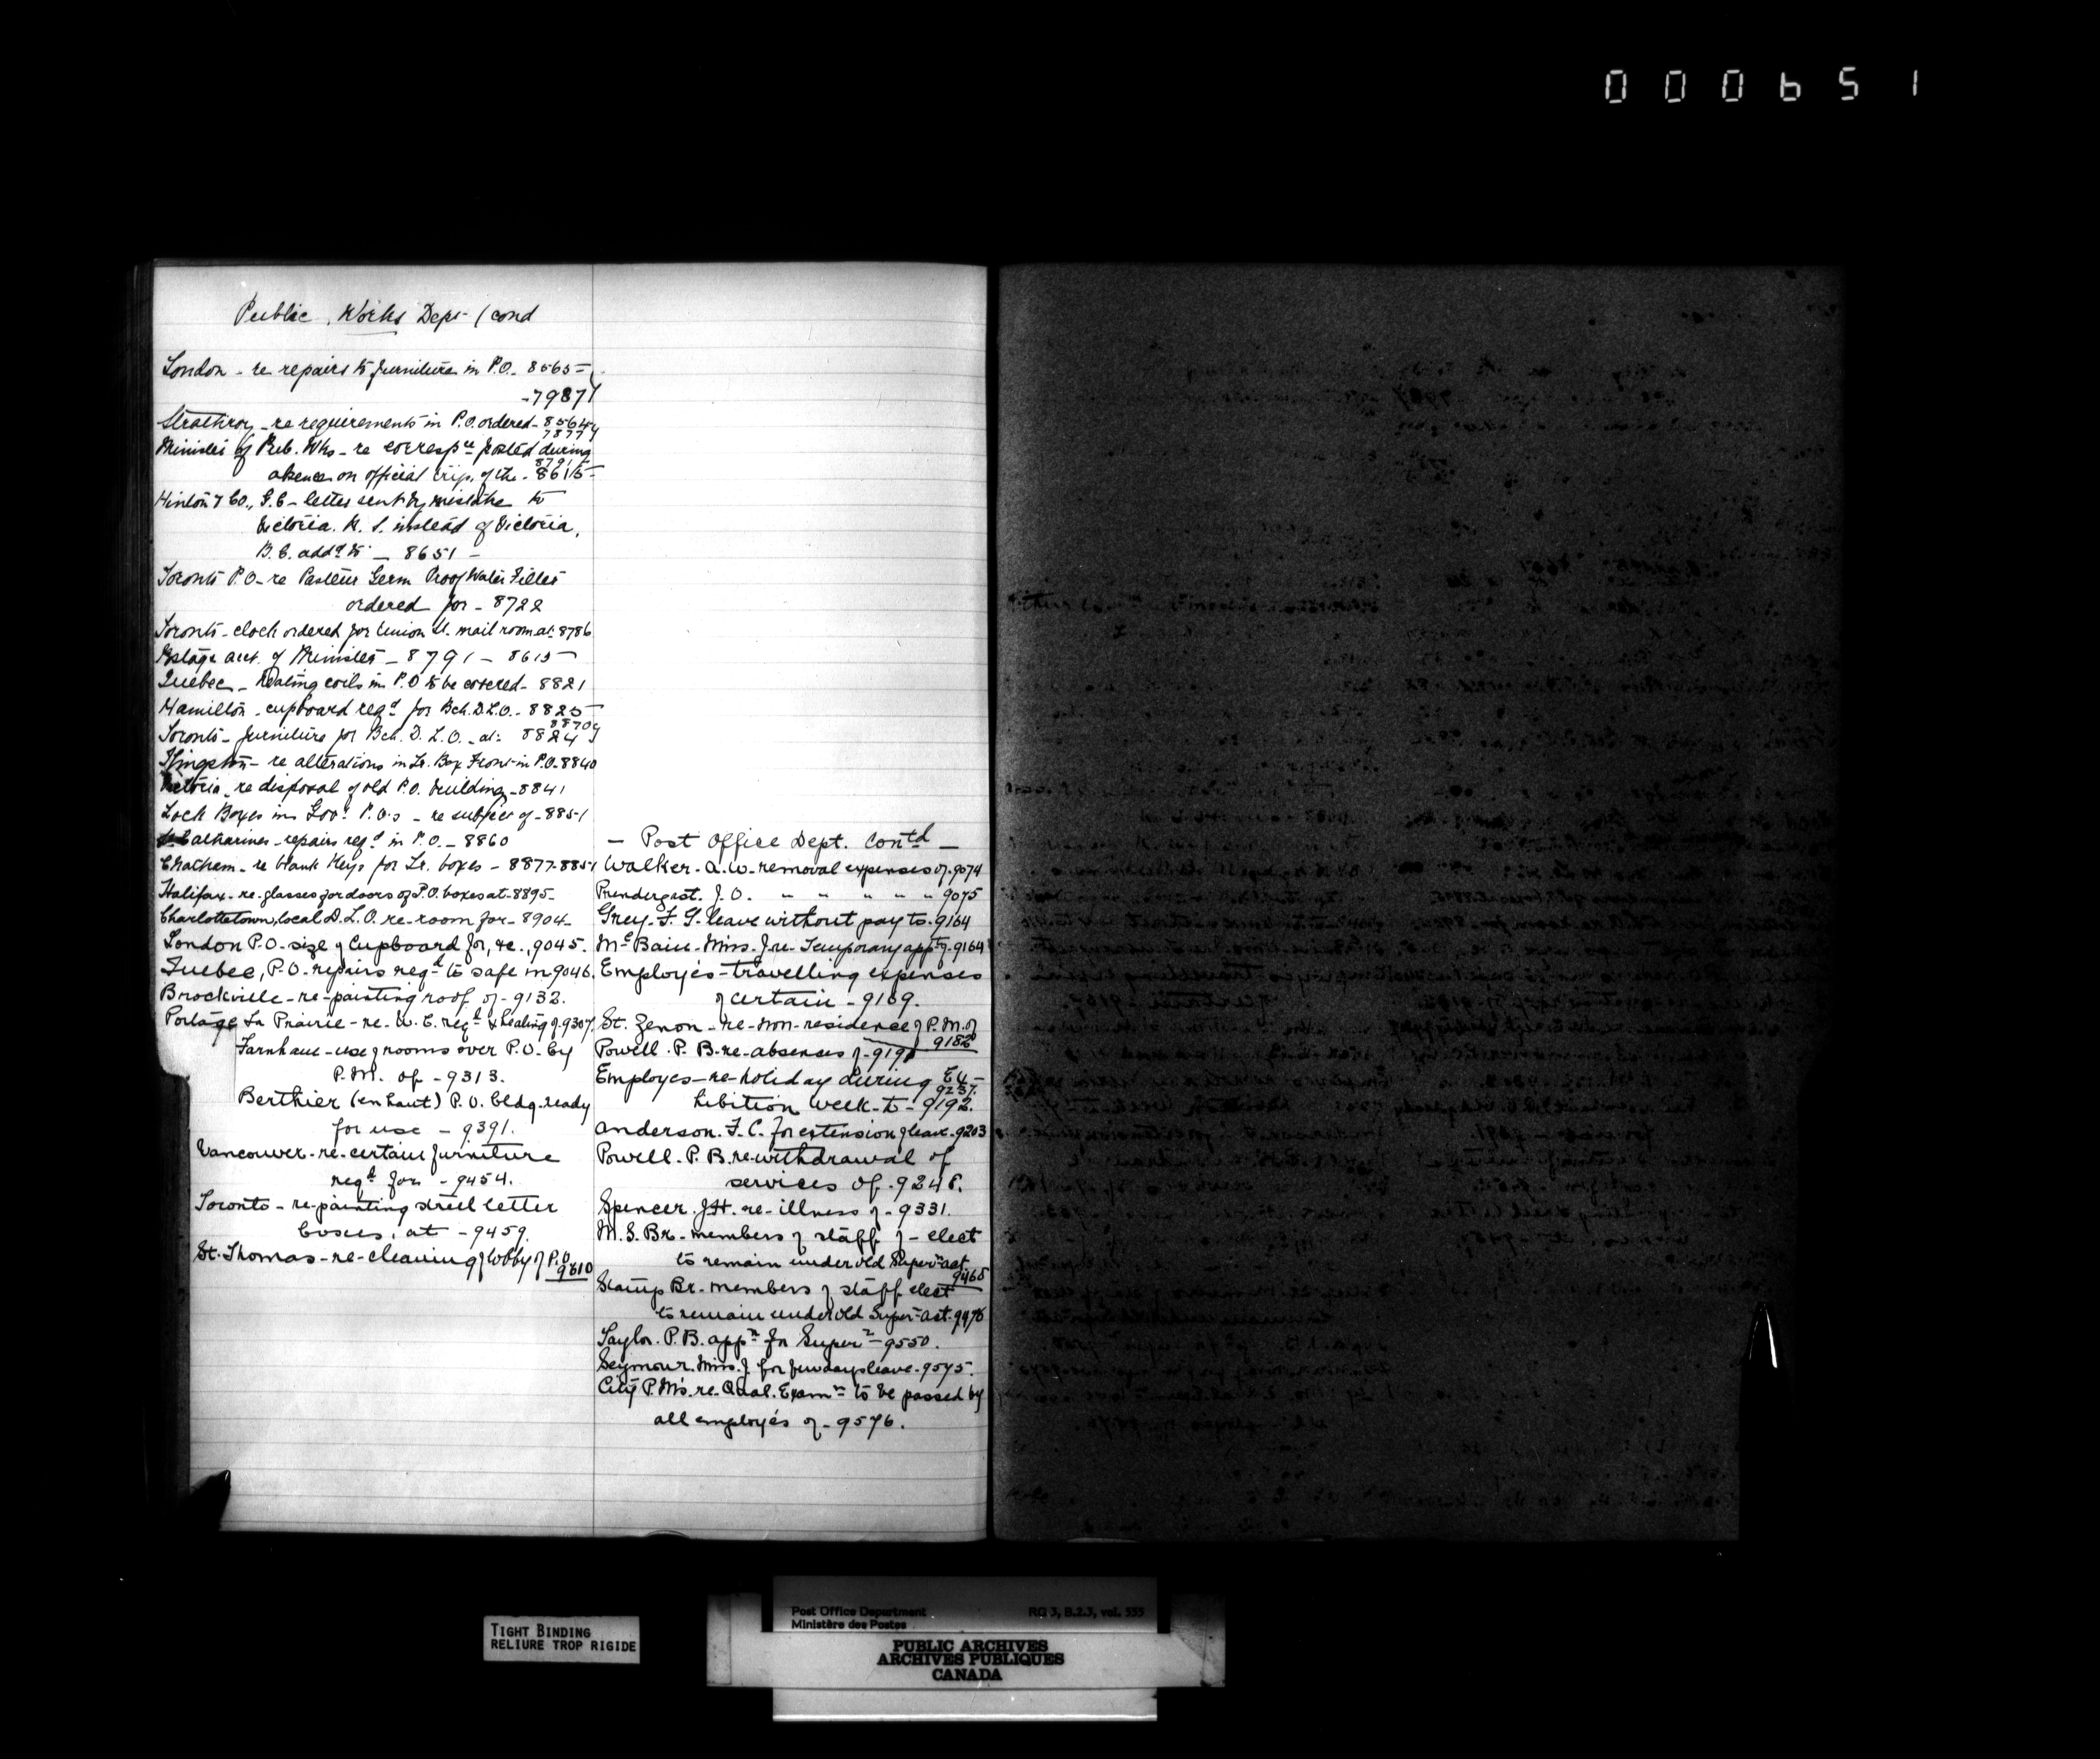 000651
Public Works Dept (cond
London - re repairs to furniture in P.O. 8565-
-7987
Strathroy - re requirements in P.O. ordered - 8564
7877
Minister of Pub. Wks - re corresp^ce posted during
8791
absence on official trip, of the - 8615-
Hinton & Co., G.C - letter sent by mistake to
Victoria. N. S. instead of Victoria,
B. C. add^d to - 8651 -
Toronto P.O - re Pasteur Germ Proof Water Filter
ordered for - 8722
Toronto - clock ordered for Union St. mail room at 8786
Postage acct. of Minister - 8791 - 8615-
Quebec - heating coils in P.O to be covered - 8821
Hamilton - cupboard req^d for Bch. D.L.O. - 8825-
8870
Toronto - furniture for Bch. D. L. O. - at: 8824
Kingston - re alterations in Lr. Box Front in P.O. 8840
Victoria - re disposal of old P.O. building - 8841
Lock Boxes in Gov^t P.O.s - re subject of - 8851
St. Catharines - repairs req^d in P.O. - 8860
Chatham - re blank Keys for Lr. boxes - 8877-8851
Halifax - re - glasses for doors of P.O. boxes at - 8895-
Charlottetown, local D.L.O. re - room for - 8904-
London P.O - size of Cupboard for, &c., 9045.
Quebec, P.O. - repairs req^d to safe in 9046.
Brockville - re - painting roof of - 9132.
Portage La Prairie - re - W. C. req^d & heating of. 9307
Farnham - use of rooms over P.O. by
P.M. of - 9313.
Berthier (en haut) P.O. bldg. ready
for use - 9391.
Vancouver - re - certain furniture
req^d for - 9454.
Toronto - re - painting street letter
boxes, at - 9459.
St. Thomas - re - cleaning of lobby of P.O.
9510
- Post Office Dept. Con^td -
Walker - A. W. - removal expenses of. 9074
Prendergast. J. O. " " " " 9075
Grey. F. G. leave without pay to. 9164
M^cBain - Miss. J re - Temporary app^t of. 9164
Employés - travelling expenses
of certain - 9169.
St. Zenon - re - non - residence of P.M. of
9182
Powell. P. B. re - absences of - 9191
Employes - re - holiday during Ex-
9237.
hibition week - to - 9192.
Anderson. F. C. for extension of leave. 9203
Powell. P. B. re - withdrawal of
services of. 9248.
Spencer. J.H. re - illness of - 9331.
M. S. Br. - members of staff of - elect
to remain under old Super^n act.
9468
Stamp Br. members of staff elect
to remain under old Super^n act. 9476
Taylor. P. B. app^n for Super^n - 9550.
Seymour. Miss. J for few days leave. 9575.
City P.M's. re. Qual. Exam^n to be passed by
all employés of - 9576.
TIGHT BINDING
RELIURE TROP RIGIDE
Post Office Department RG 3, B.2.3, vol. 555
Ministère des Postes
PUBLIC ARCHIVES
ARCHIVES PUBLIQUES
CANADA